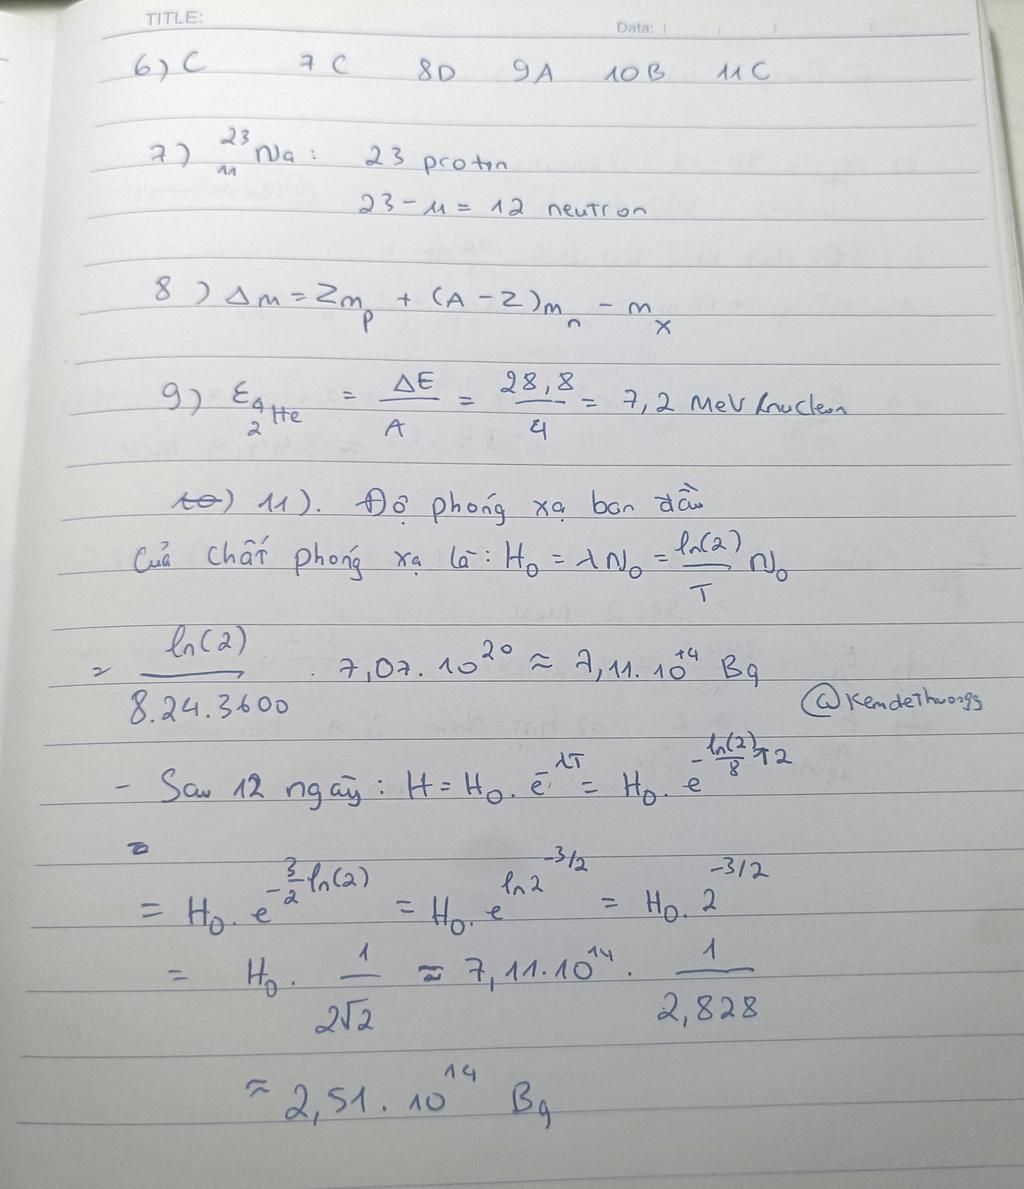 TITLE:
Data:
6) C 7 C 8D 9A 10B 11C
7) ²³₁₁Na: 23 proton
23 - 11 = 12 neutron
8) Δm = Zm_p + (A - Z)m_n - m_x
9) ε_{⁴₂He} = ΔE/A = 28,8/4 = 7,2 MeV/nucleon
10) 11). Độ phóng xạ ban đầu
Của chất phóng xạ là: H₀ = λN₀ = ln(2)/T N₀
= ln(2)/8.24.3600 . 7,07.10²⁰ ≈ 7,11.10¹⁴ Bq
@Kemdethuongs
- Sau 12 ngày: H = H₀. e^{-λT} = H₀. e^{-ln(2)/8 12}
=
= H₀. e^{-3/2 ln(2)} = H₀. e^{ln2^{-3/2}} = H₀. 2^{-3/2}
= H₀. 1/2√2 ≈ 7,11.10¹⁴. 1/2,828
≈ 2,51.10¹⁴ Bq